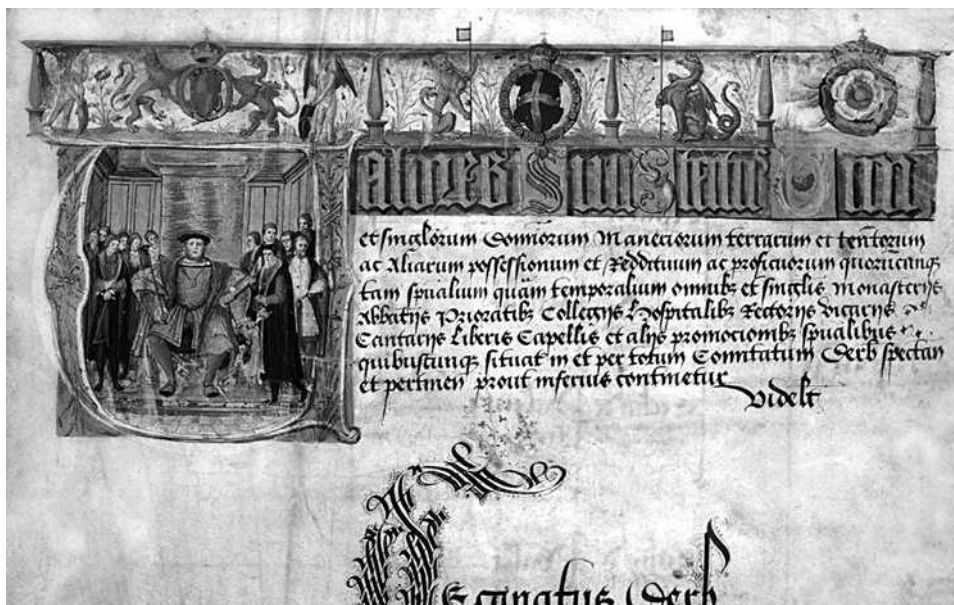 Valores Siue Statut Omn
et singlorum Domniorum Maneriorum terrarum et tentorum
ac Aliarum possessionum et Reddituum ac proficuorum quorūcanqꝫ
tam spualium quam temporalium omnibꝫ et singlis monasterijs
Abbatijs Prioratibꝫ Collegijs Hospitalibꝫ Rectorijs vicarijs
Cantarijs Liberis Capellis et alijs promocionibꝫ spualibus
quibuscunqꝫ situat in et per totum Comitatum Derb spectan
et pertinen prout inferius continetur
Videlt
Decanatus Derb